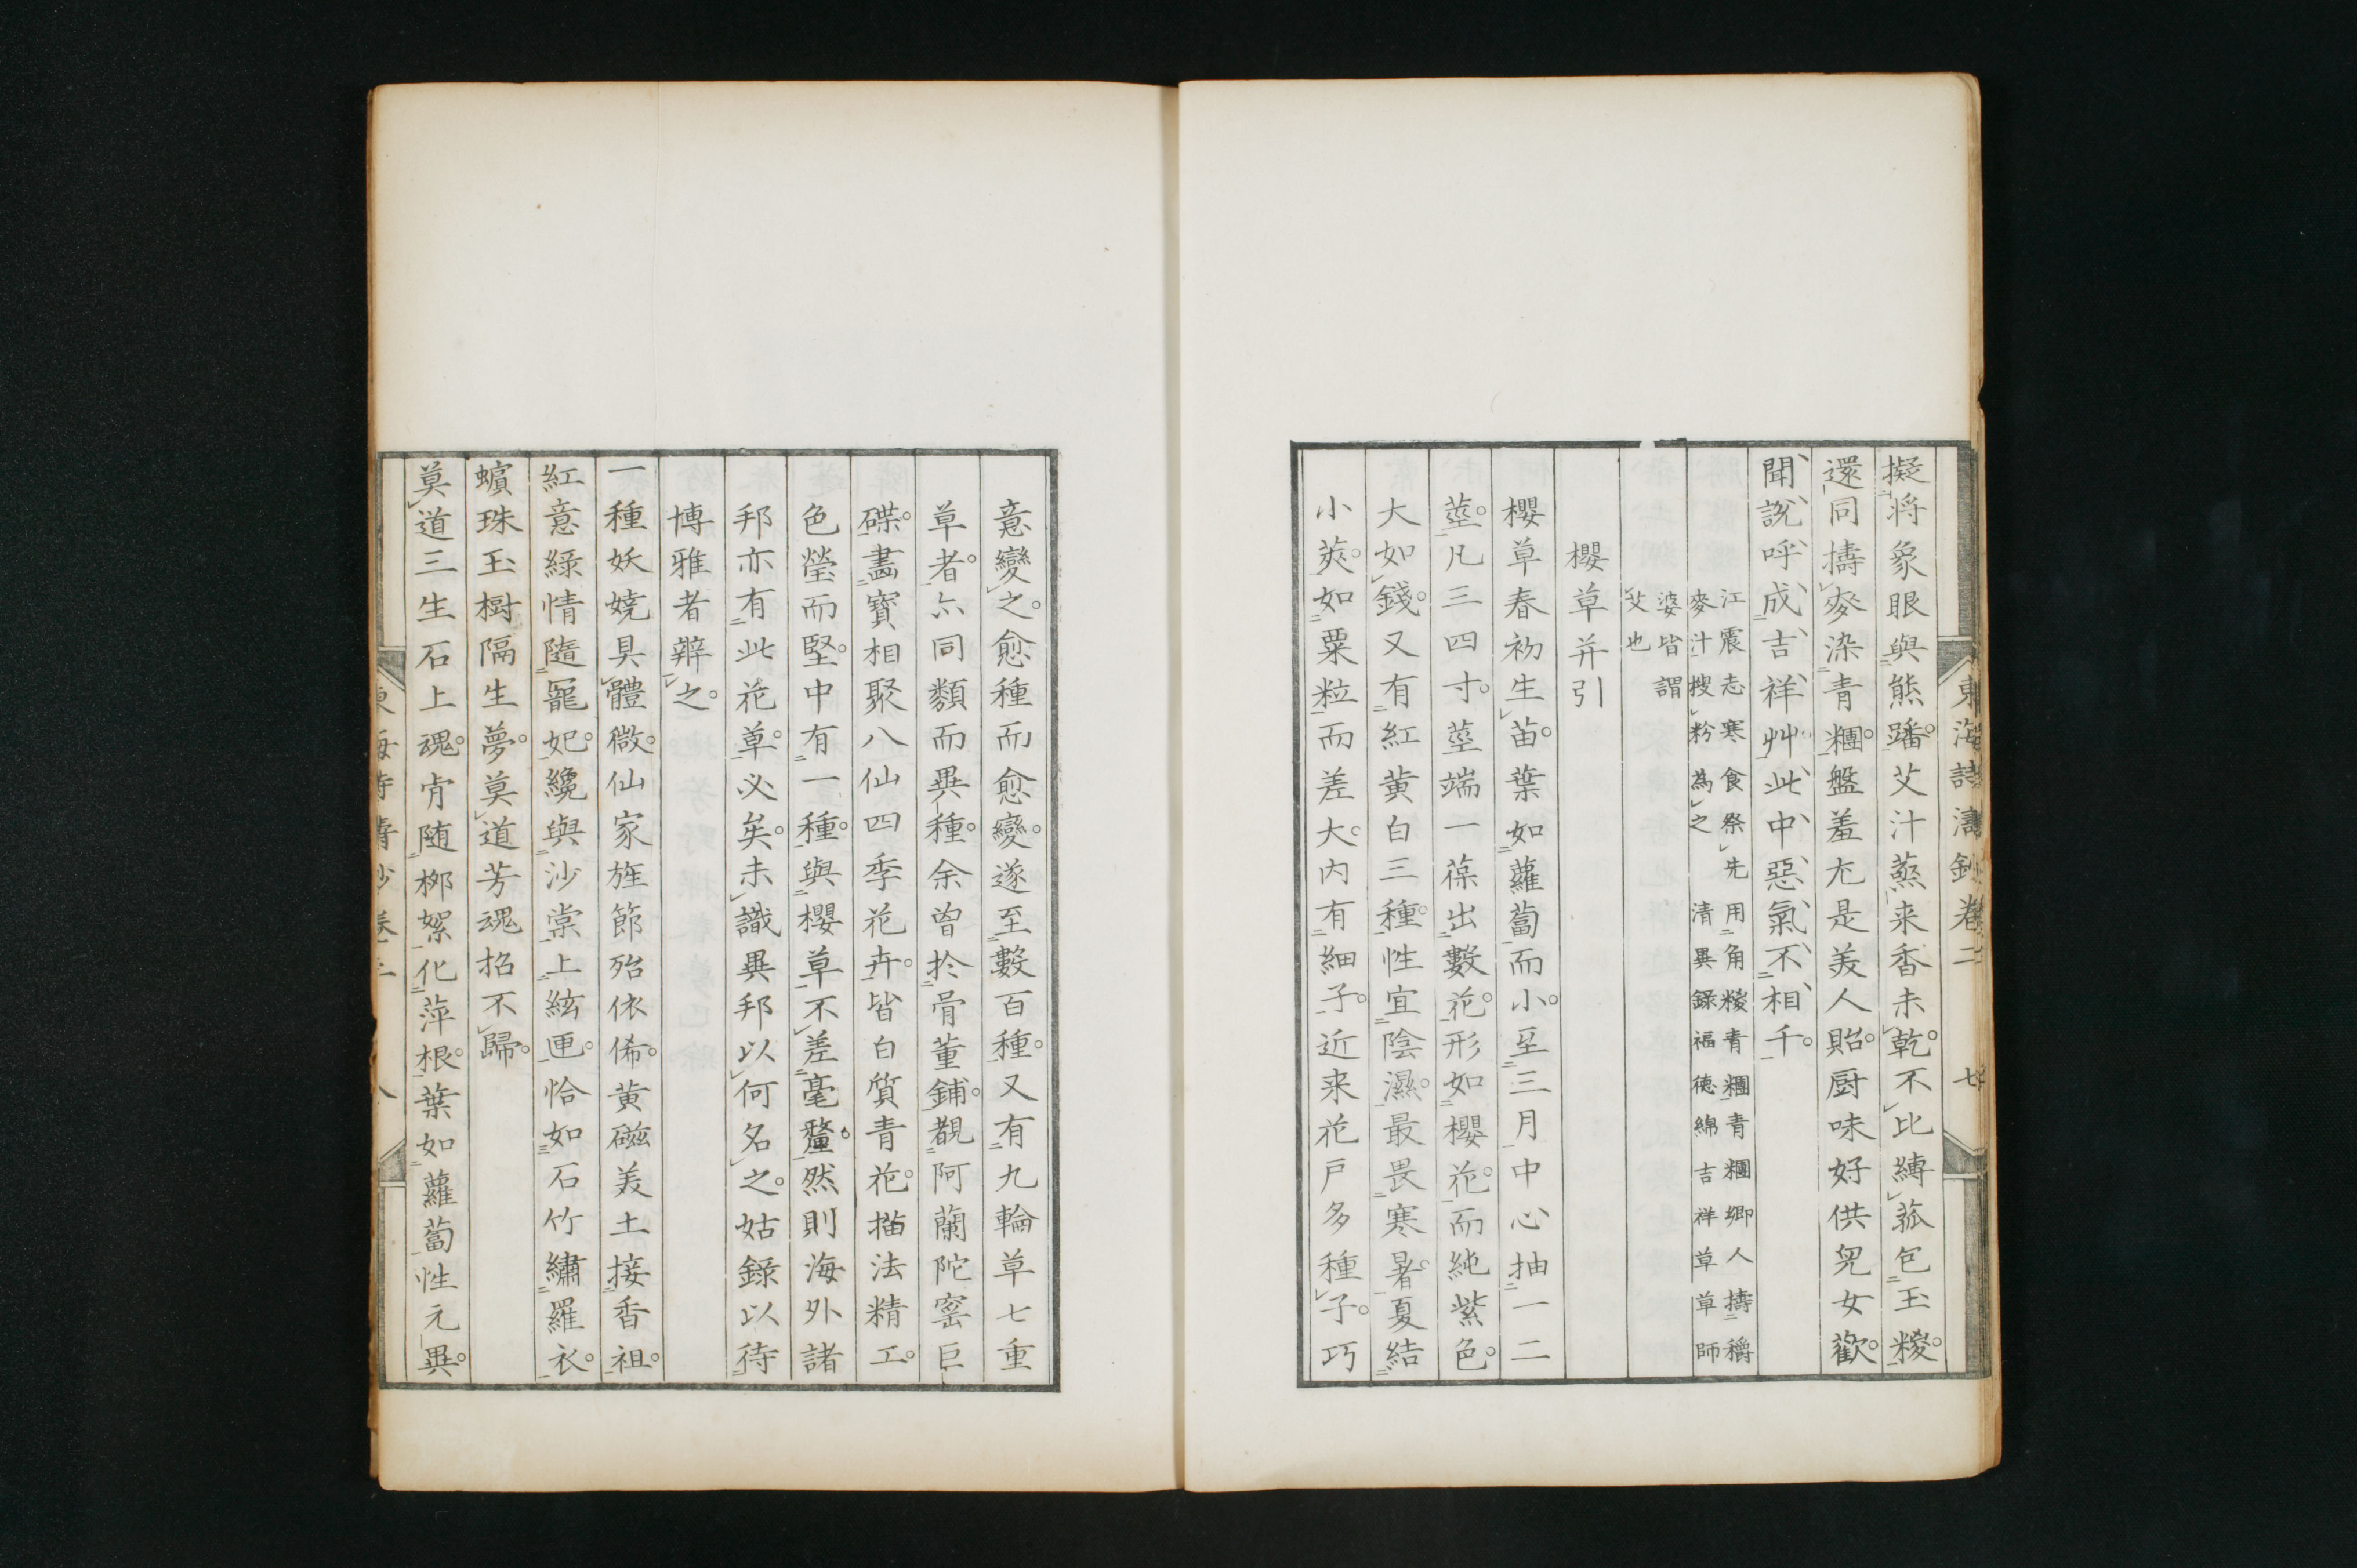 東海詩濤鈔卷二　七
擬將象眼與熊蹯艾汁蒸来香未乾不比縛菰包玉糉
還同擣麥染青糰盤羞尤是美人貽厨味好供兒女歡
聞説呼成吉祥艸此中惡氣不相干
江震志寒食祭先用角糉青糰青糰郷人擣穭
麥汁搜粉為之　清異録福徳綿吉祥草草師
婆皆謂
艾也
櫻草并引
櫻草春初生苗葉如蘿蔔而小至三月中心抽一二
莖凡三四寸莖端一葆出數花形如櫻花而純紫色
大如錢又有紅黄白三種性宜陰濕最畏寒暑夏結
小莢如粟粒而差大内有細子近来花戸多種子巧
意變之愈種而愈變遂至數百種又有九輪草七重
草者亦同類而異種余曽於骨董鋪覩阿蘭陀窑巨
碟畵寳相聚八仙四季花卉皆白質青花描法精工
色瑩而堅中有一種與櫻草不差毫釐然則海外諸
邦亦有此花草必矣未識異邦以何名之姑録以待
博雅者辨之
一種妖嬈具體微仙家旌節殆依俙黄磁美土接香祖
紅意緑情隨寵妃纔與沙棠上絃匣恰如石竹繡羅衣
蠙珠玉樹隔生夢莫道芳魂招不歸
莫道三生石上魂肯随柳絮化萍根葉如蘿蔔性元異
東海詩濤鈔卷二　八